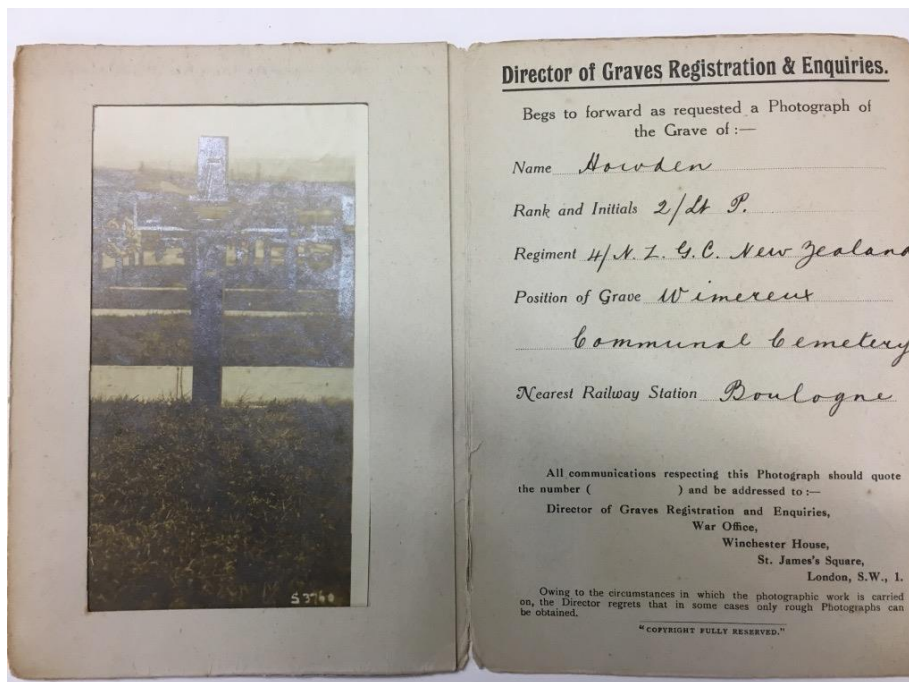 S3760
Director of Graves Registration & Enquiries.
Begs to forward as requested a Photograph of
the Grave of :—
Name Howden
Rank and Initials 2/Lt P.
Regiment 4/N. Z. G. C. New Zealand
Position of Grave Wimereux
Communal Cemetery
Nearest Railway Station Boulogne
All communications respecting this Photograph should quote
the number ( ) and be addressed to :—
Director of Graves Registration and Enquiries,
War Office,
Winchester House,
St. James's Square,
London, S.W., 1.
Owing to the circumstances in which the photographic work is carried
on, the Director regrets that in some cases only rough Photographs can
be obtained.
"COPYRIGHT FULLY RESERVED."